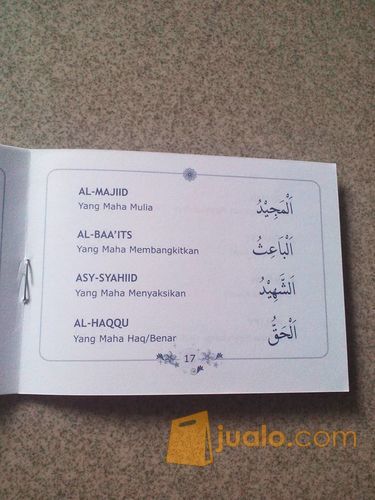 AL-MAJIID
Yang Maha Mulia
اَلْمَجِيْدُ
AL-BAA'ITS
Yang Maha Membangkitkan
اَلْبَاعِثُ
ASY-SYAHIID
Yang Maha Menyaksikan
اَلشَّهِيْدُ
AL-HAQQU
Yang Maha Haq/Benar
اَلْحَقُّ
17
jualo.com